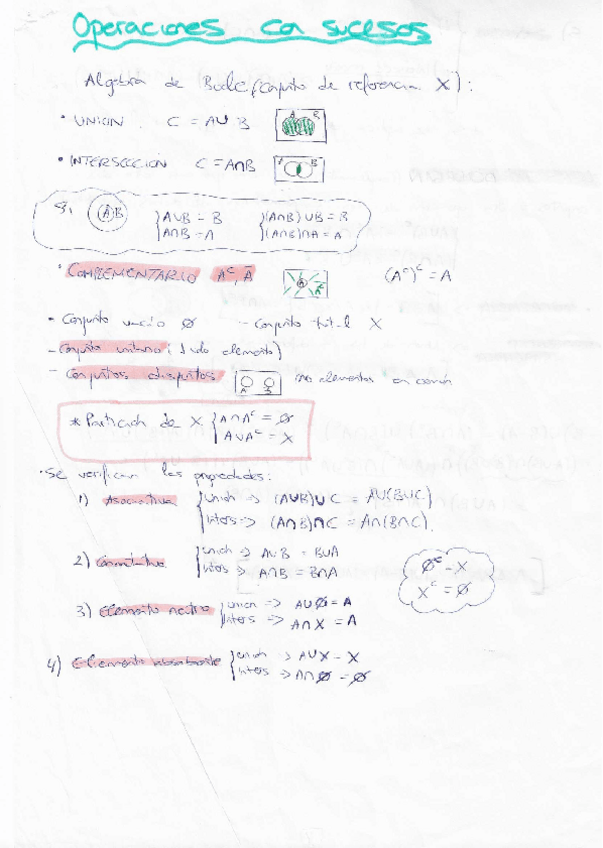 Operaciones con sucesos
Algebra de Boole (Conjunto de referencia X):
• UNION C = A∪B A B
• INTERSECCION C = A∩B A B
Si A B { A∪B = B { (A∩B)∪B = B
A∩B = A (A∪B)∩A = A
• COMPLEMENTARIO Aᶜ, Ā A Aᶜ (Aᶜ)ᶜ = A
- Conjunto vacío Ø - Conjunto total X
- Conjunto unitario (1 solo elemento)
- Conjuntos disjuntos A B no elementos en común
* Partición de X { A∩Aᶜ = Ø
A∪Aᶜ = X
• Se verifican las propiedades:
1) Asociativa { unión => (A∪B)∪C = A∪(B∪C)
inters => (A∩B)∩C = A∩(B∩C).
2) Conmutativa { unión => A∪B = B∪A
inters => A∩B = B∩A
Øᶜ = X
Xᶜ = Ø
3) Elemento neutro { unión => A∪Ø = A
inters => A∩X = A
4) Elemento absorbente { unión => A∪X = X
inters => A∩Ø = Ø